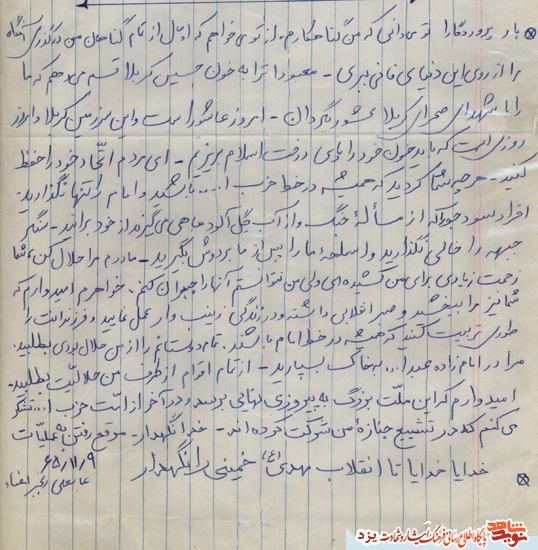 بار پروردگارا تو می‌دانی که من گناهکارم، از تو می‌خواهم که اول از تمام گناهان من درگذری آنگاه
مرا از روی این دنیای فانی ببری - معبودا ترا به خون حسین کربلا قسم می‌دهم که ما
را با شهدای صحرای کربلا محشور بگردان - امروز عاشورا است و این سرزمین کربلا و امروز
روزی است که باید خون خود را پای درخت اسلام بریزیم - ای مردم اتحاد خود را حفظ
کنید - هرچه شما کردید که همیشه در خط حزب ا... باشید و امام را تنها نگذارید
افراد سودجو که از مسألهٔ جنگ و از آب گل آلود ماهی می‌گیرند از خود برانند - سنگر
جبهه را خالی نگذارید و اسلحهٔ ما را پس از ما بر دوش بگیرید - مادرم مرا حلال کن، شما
زحمت زیادی برای من کشیده‌ای ولی من نتوانستم آنها را جبران کنم. خواهرم امیدوارم که
شما نیز مرا ببخشید و صبر انقلابی داشته و در زندگی زینب وار عمل نمایید و فرزندانت را
طوری تربیت کنید که همیشه در خط امام باشند. تمام دوستانم را از من حلال بودی بطلبید.
مرا در امامزاده عبدا... به خاک بسپارید - از تمام اقوام از طرف من حلالیت بطلبید.
امیدوارم که این ملت بزرگ به پیروزی نهایی برسد و در آخر از امت حزب ا... تشکر
می‌کنم که در تشییع جنازهٔ من شرکت کرده‌اند - خدا نگهدار - موقع رفتن به عملیات
خدایا خدایا تا انقلاب مهدی (ع) خمینی را نگهدار
۶۵/۱۱/۹
شاهد
نوید
پایگاه اطلاع رسانی فرهنگ ایثار و شهادت یزد